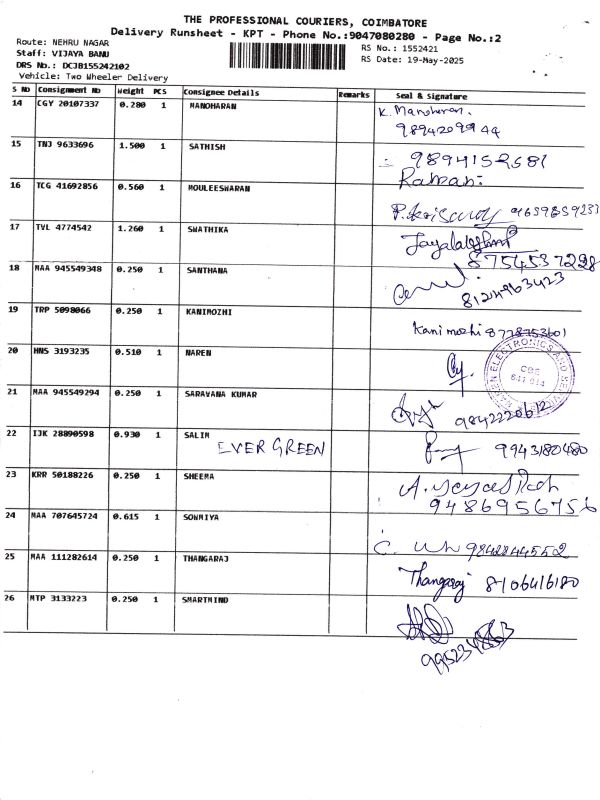 THE PROFESSIONAL COURIERS, COIMBATORE
Delivery Runsheet - KPT - Phone No.:9047080280 - Page No.:2
Route: NEHRU NAGAR
Staff: VIJAYA BANU
DRS No.: DCJB155242102
Vehicle: Two Wheeler Delivery
RS No.: 1552421
RS Date: 19-May-2025
S No Consignment No Weight PCS Consignee Details Remarks Seal & Signature
14 CGY 20107337 0.280 1 MANOHARAN K. Manoharan.
9894209944
15 TNJ 9633696 1.500 1 SATHISH
Raman.
16 TCG 41692856 0.560 1 MOULEESWARAN
17 TVL 4774542 1.260 1 SWATHIKA
8754537228
18 MAA 945549348 0.250 1 SANTHANA
8124963423
19 TRP 5098066 0.250 1 KANIMOZHI Kanimozhi 8778753601
20 HNS 3193235 0.510 1 NAREN
NAREN ELECTRONICS AND
CBE
641 014
21 MAA 945549294 0.250 1 SARAVANA KUMAR
9842220612
22 IJK 28890598 0.930 1 SALIM
EVER GREEN
9943180480
23 KRR 50188226 0.250 1 SHEEMA
9486956756
24 MAA 707645724 0.615 1 SOWMIYA
9842844552
25 MAA 111282614 0.250 1 THANGARAJ Thangaraj 8106416180
26 MTP 3133223 0.250 1 SMARTMIND